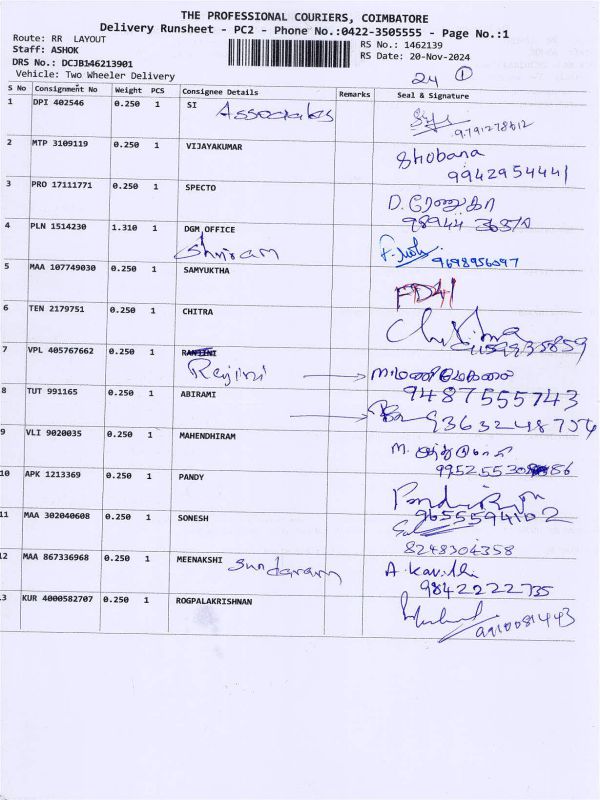 THE PROFESSIONAL COURIERS, COIMBATORE
Delivery Runsheet - PC2 - Phone No.:0422-3505555 - Page No.:1
Route: RR LAYOUT
RS No.: 1462139
Staff: ASHOK
RS Date: 20-Nov-2024
DRS No.: DCJB146213901
Vehicle: Two Wheeler Delivery
24 1
S No Consignment No Weight PCS Consignee Details Remarks Seal & Signature
1 DPI 402546 0.250 1 SI Associates
9791278612
2 MTP 3109119 0.250 1 VIJAYAKUMAR Shobana
9942954441
3 PRO 17111771 0.250 1 SPECTO D. ரேணுகா
98944
4 PLN 1514230 1.310 1 DGM OFFICE
Shriram 9698956097
5 MAA 107749030 0.250 1 SAMYUKTHA FD41
6 TEN 2179751 0.250 1 CHITRA Chitra
7 VPL 405767662 0.250 1 RANJINI
Renjini மணிமேகலை
9487555743
8 TUT 991165 0.250 1 ABIRAMI
9363248754
9 VLI 9020035 0.250 1 MAHENDHIRAM M.
10 APK 1213369 0.250 1 PANDY
9655594102
11 MAA 302040608 0.250 1 SONESH
8248304358
12 MAA 867336968 0.250 1 MEENAKSHI Sundaram A. Kavitha
9842222735
13 KUR 4000582707 0.250 1 ROGPALAKRISHNAN